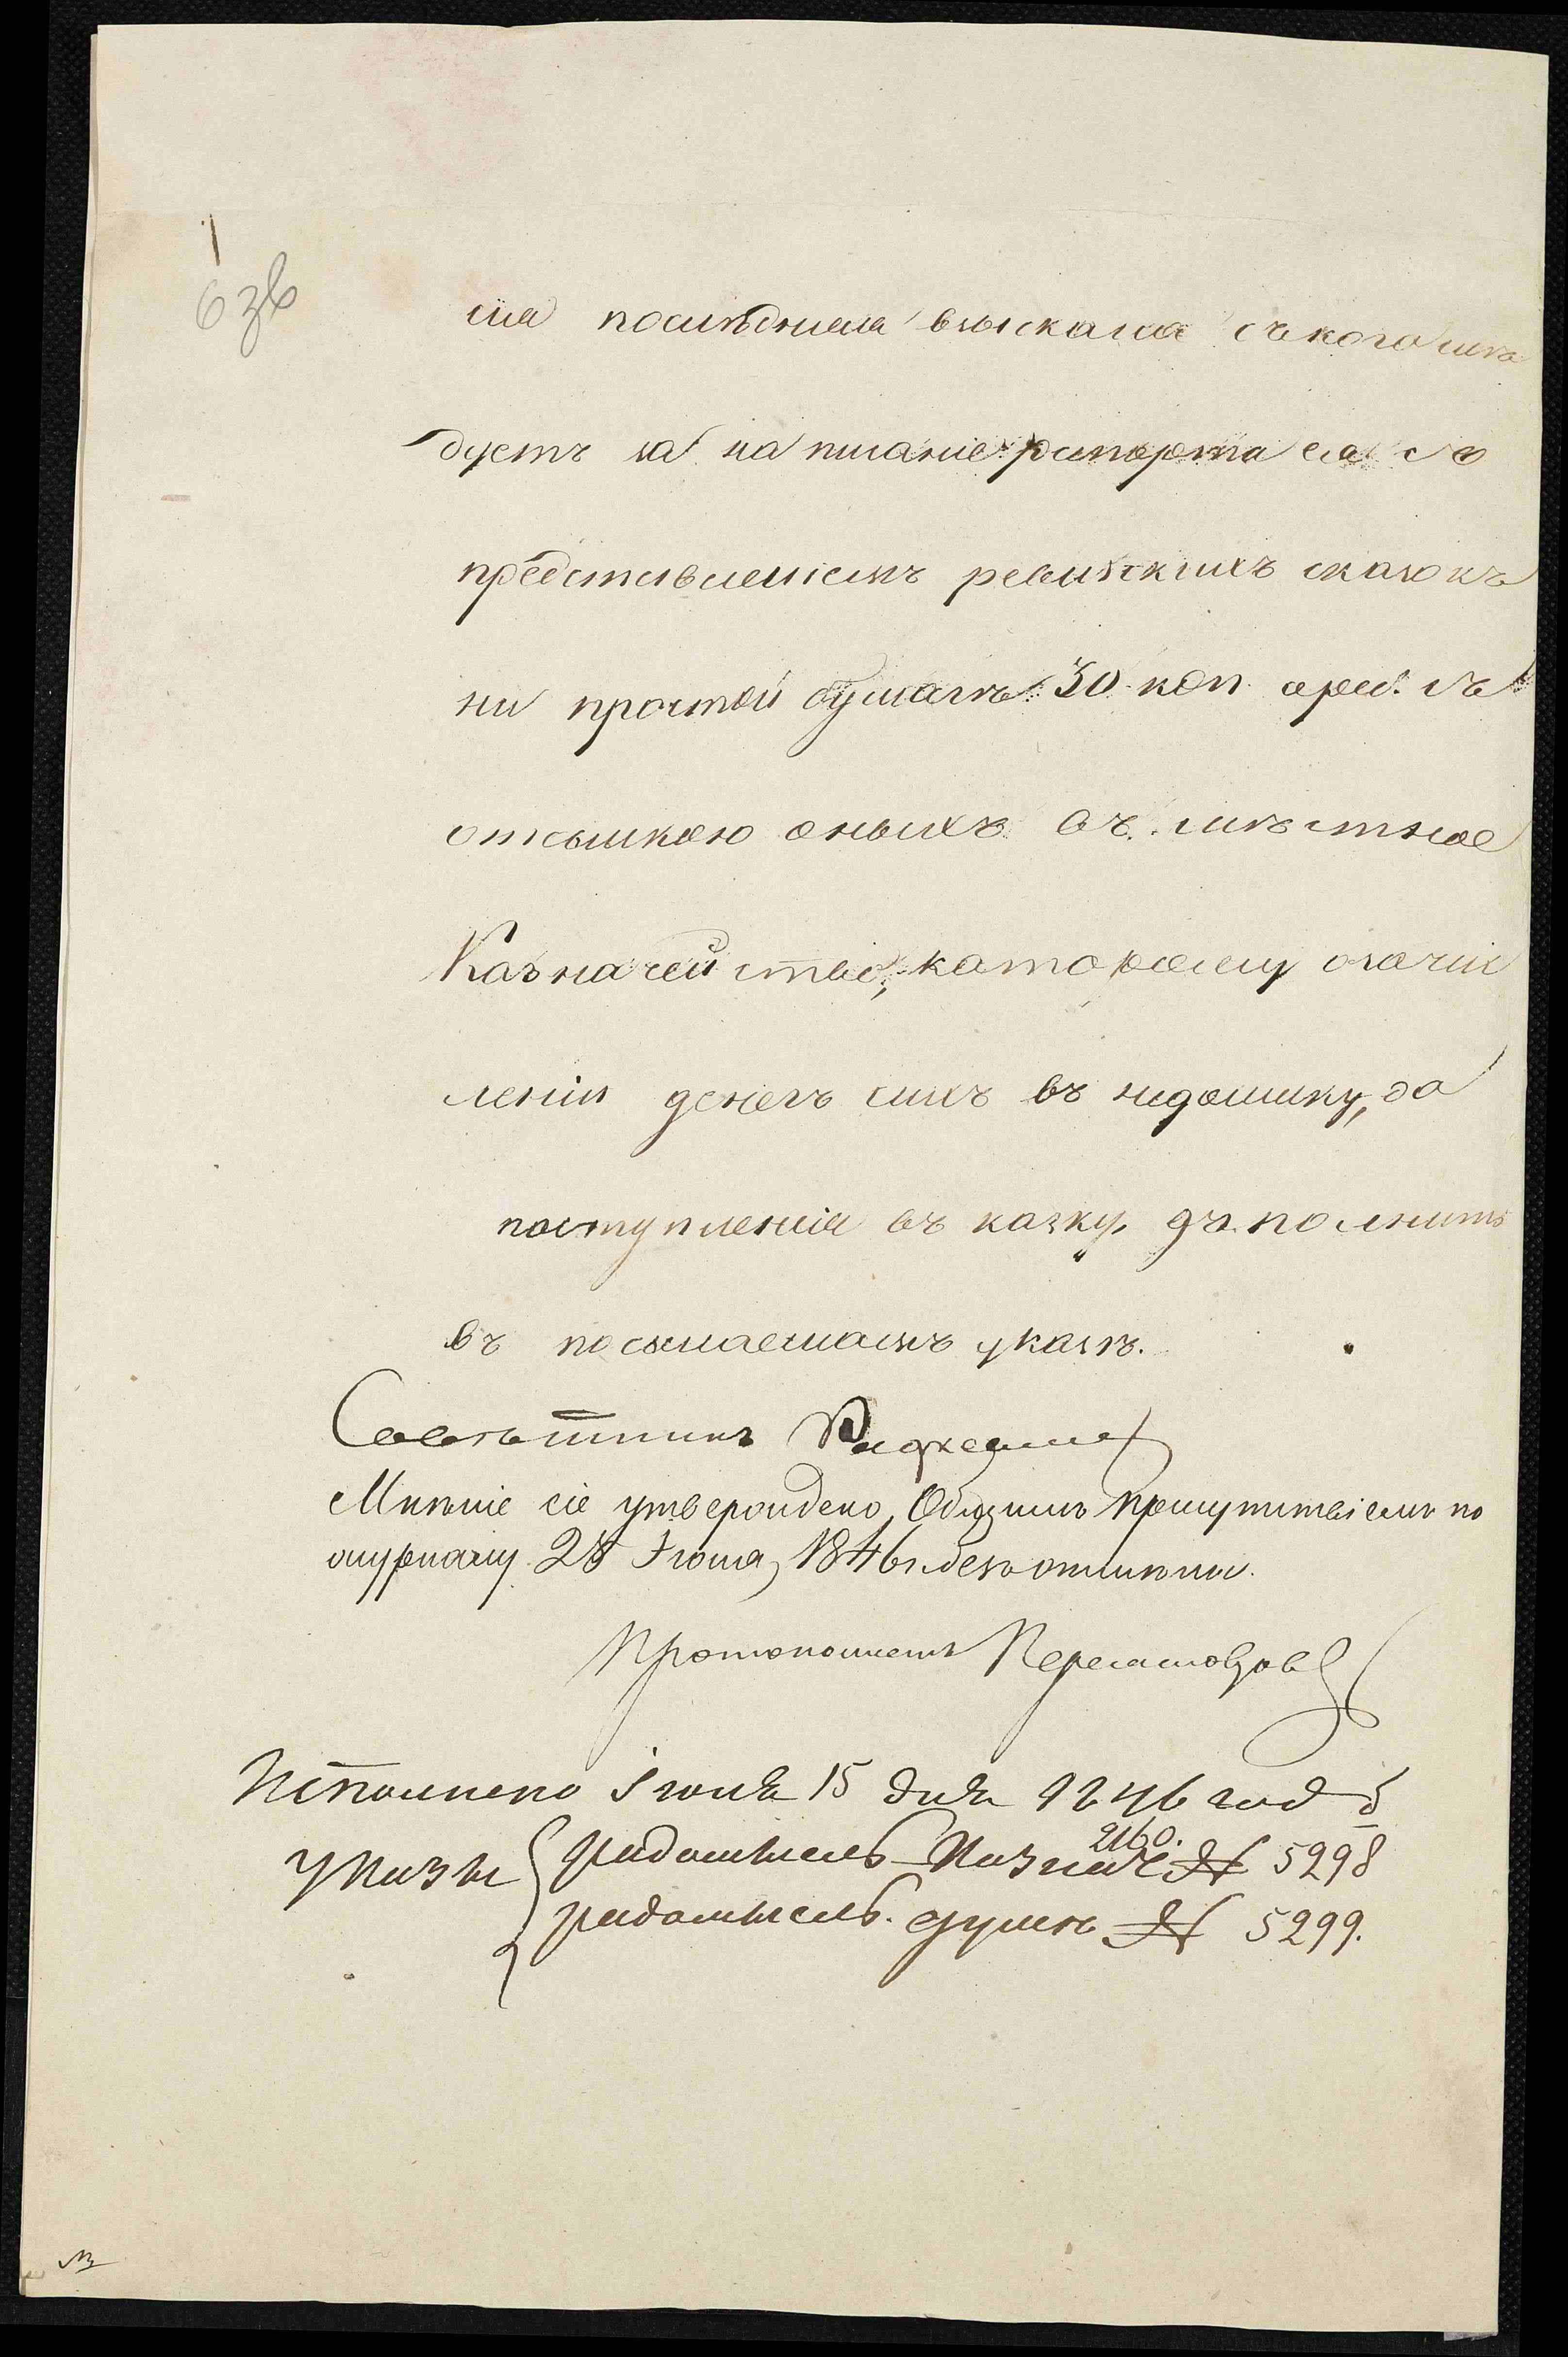 6 зв
последняя взыскала съ кого слѣ
дуетъ за написаніе рапорта ея съ
представленіемъ ревизскихъ сказокъ
на простой бумагѣ 30 коп. сереб. съ
отсылкою оныхъ въ мѣстное
Казначейство, которому о зачис
леніи денегъ сихъ въ недоимку, до
поступленія въ казну, дополнить
въ посылаемомъ указѣ.
Совѣтникъ
Мнѣніе сіе утверждено Общимъ Присутствіемъ по
журналу 28 Іюня 1846 г. безъ отмѣны.
Протоколистъ
Исполнено Іюля 15 дня 1846 года
указы радомысль. Казначейство. № 5298
радомысль. думѣ № 5299.